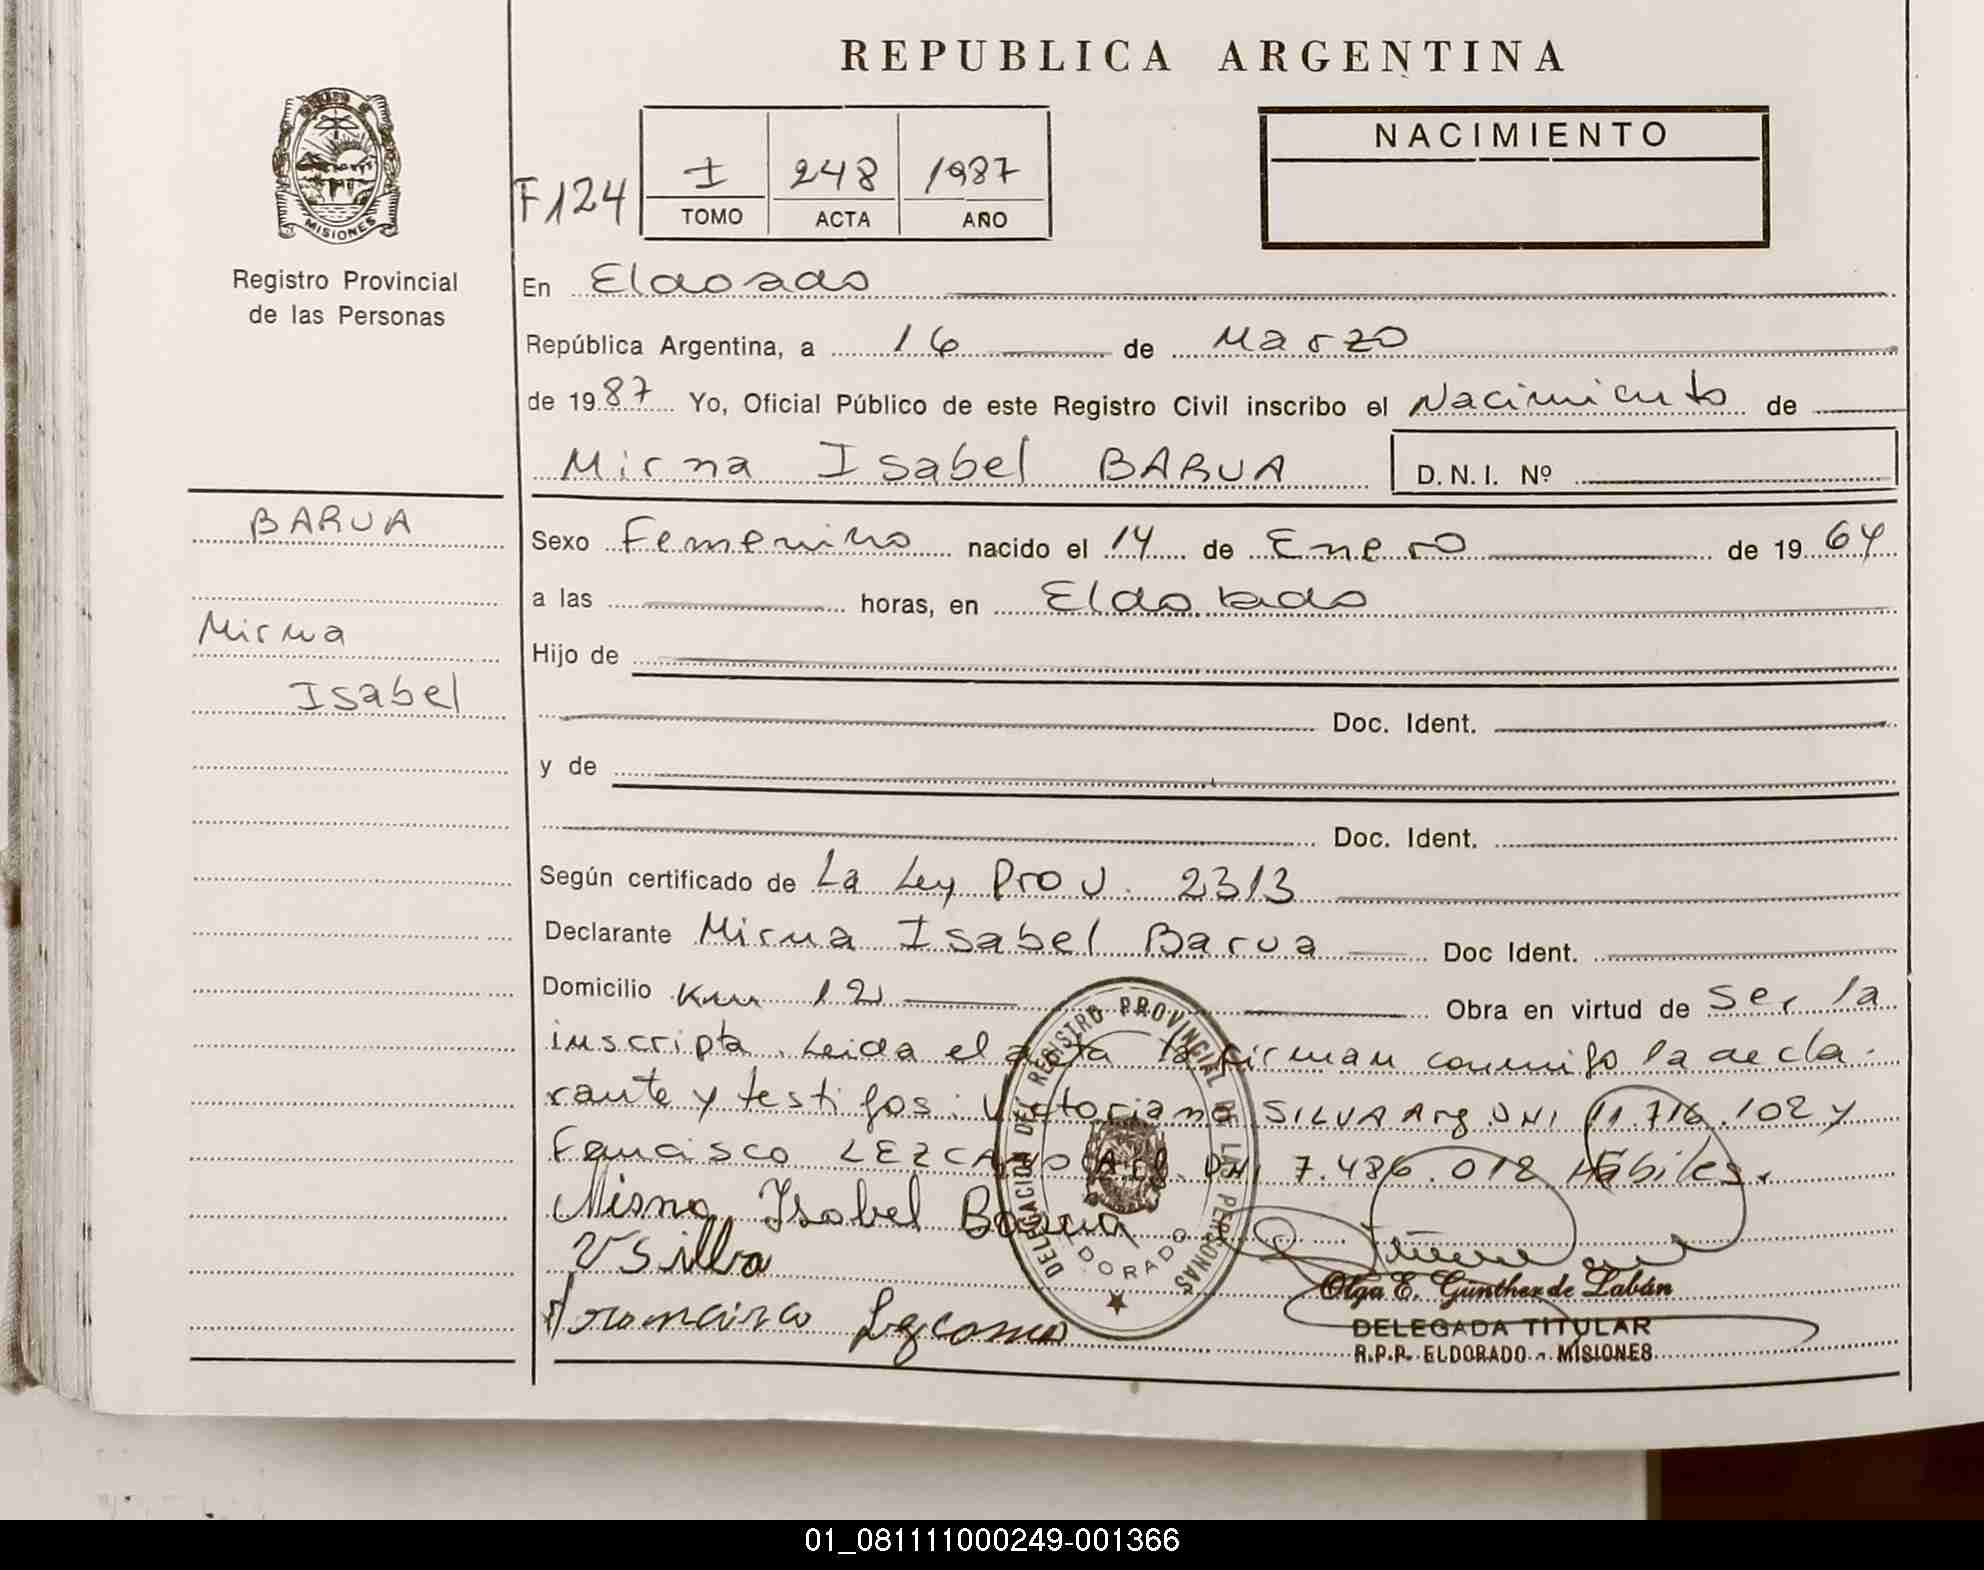 REPUBLICA ARGENTINA
MISIONES
Registro Provincial
de las Personas
F124
I 248 1987
TOMO ACTA AÑO
NACIMIENTO
En Eldorado
República Argentina, a 16 de Marzo
de 1987 Yo, Oficial Público de este Registro Civil inscribo el Nacimiento de
Mirna Isabel BARUA D.N.I. Nº
BARUA
Mirna
Isabel
Sexo Femenino nacido el 14 de Enero de 1964
a las horas, en Eldorado
Hijo de
Doc. Ident.
y de
Doc. Ident.
Según certificado de La Ley Prov. 2313
Declarante Mirna Isabel Barua Doc Ident.
Domicilio Km 12 Obra en virtud de Ser la
inscripta. Leida el acta la firman conmigo la decla-
rante y testigos: Victoriano SILVA Arg. DNI 11.716.102 y
Francisco LEZCANO Arg. DNI 7.486.018 Hábiles.
Mirna Isabel Barua
V Silva
Francisco Lezcano
DELEGACION DEL REGISTRO PROVINCIAL DE LAS PERSONAS
ELDORADO
Olga E. Günther de Labán
DELEGADA TITULAR
R.P.P. ELDORADO - MISIONES
01_081111000249-001366